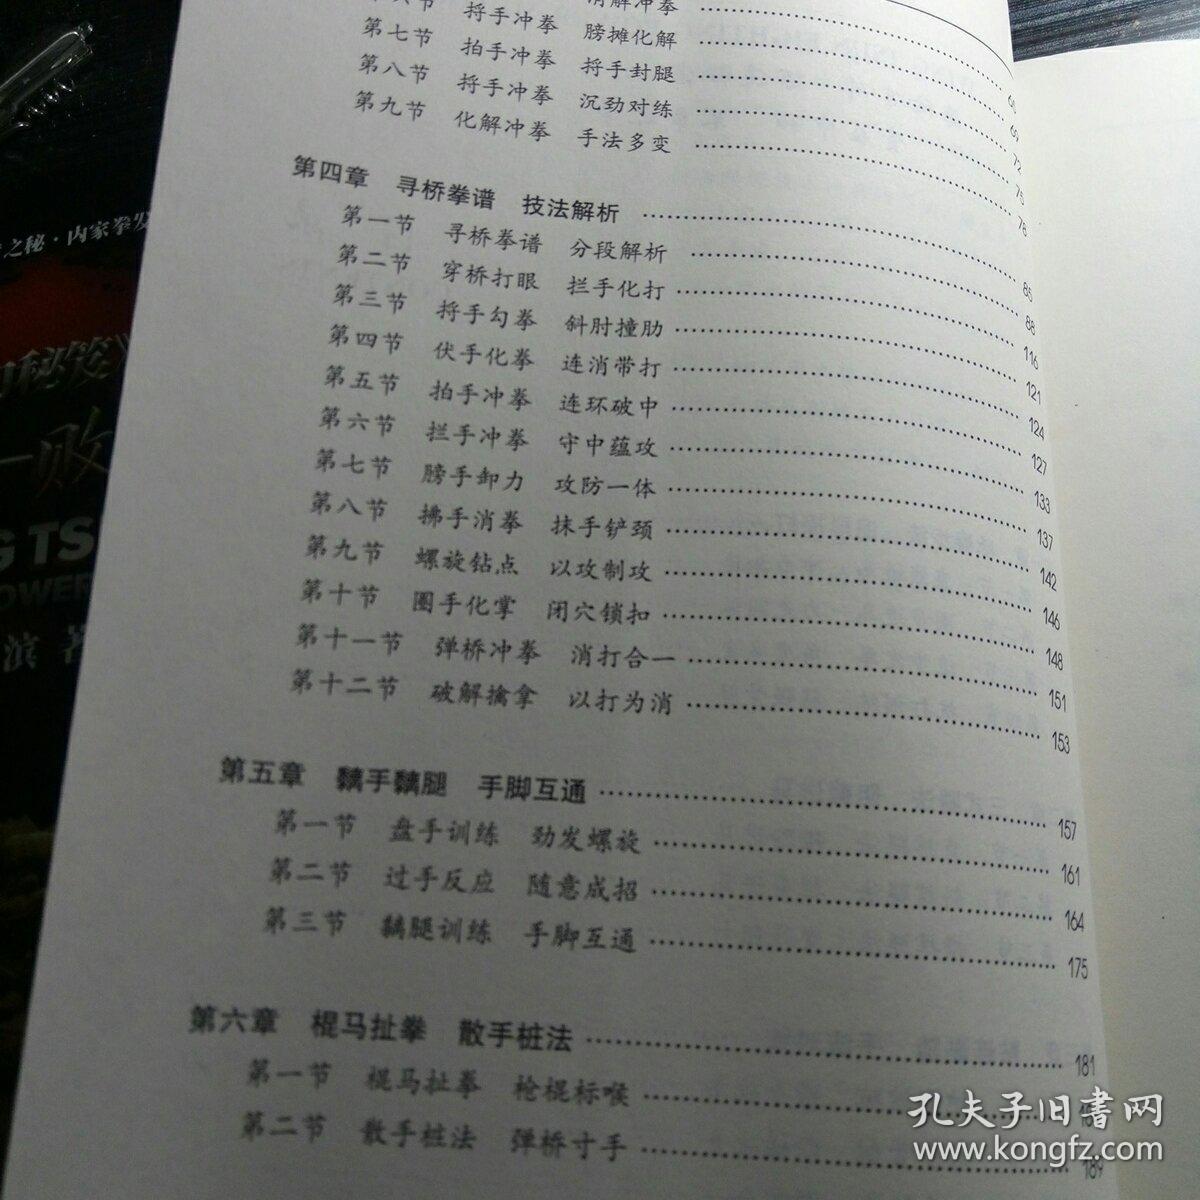 捋手冲拳 消解冲拳
第七节 拍手冲拳 膀摊化解 69
第八节 捋手冲拳 捋手封腿 72
第九节 化解冲拳 沉劲对练 75
手法多变 78
第四章 寻桥拳谱 技法解析 85
第一节 寻桥拳谱 分段解析 88
第二节 穿桥打眼 拦手化打 116
第三节 捋手勾拳 斜肘撞肋 121
第四节 伏手化拳 连消带打 124
第五节 拍手冲拳 连环破中 127
第六节 拦手冲拳 守中蕴攻 133
第七节 膀手卸力 攻防一体 137
第八节 拂手消拳 抹手铲颈 142
第九节 螺旋钻点 以攻制攻 146
第十节 圈手化掌 闭穴锁扣 148
第十一节 弹桥冲拳 消打合一 151
第十二节 破解擒拿 以打为消 153
第五章 黐手黐腿 手脚互通 157
第一节 盘手训练 劲发螺旋 161
第二节 过手反应 随意成招 164
第三节 黐腿训练 手脚互通 175
第六章 棍马扯拳 散手桩法 181
第一节 棍马扯拳 枪棍标喉
第二节 散手桩法 弹桥寸手 189
之秘·内家拳发
秘笈》
一败
G TS
POWER
滨 著
孔夫子旧书网
www.kongfz.com